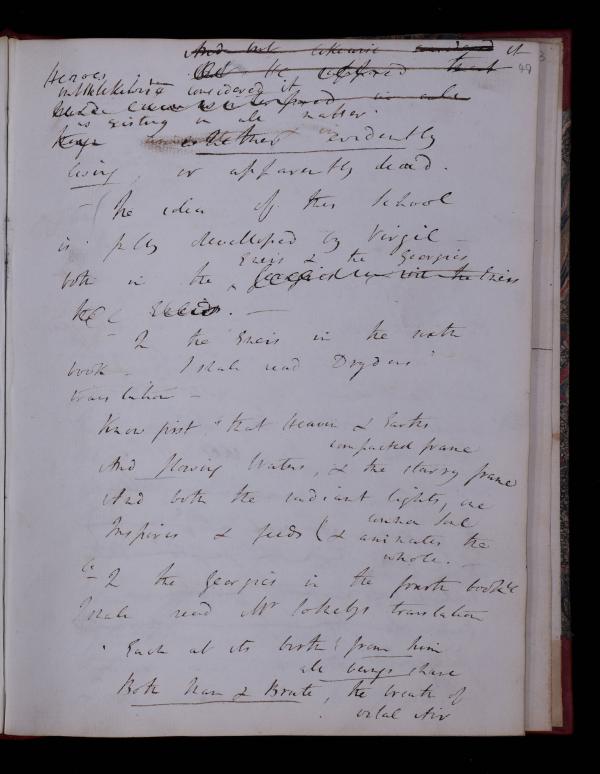 And but likewise it
49
Heroes he that
considered it
as existing in all matter.
whether evidently
living, or apparently dead.
– The idea of this School
is developed by Virgil –
Eneis & the Georgics
both in the with the Eneis
–
– In the Eneis in the sixth
book – I shall read Drydens
translation –
Know first "that Heaven & Earths
compacted frame
And flowing Waters, & the starry frame
And both the radiant lights, one
common soul
Inspires & feeds (& animates the
whole. –
In the Georgics in the fourth book
I shall read Mr Sothebys translation
Each at its birth from him
all beings share
Both Man & Brute, the breath of
vital Air